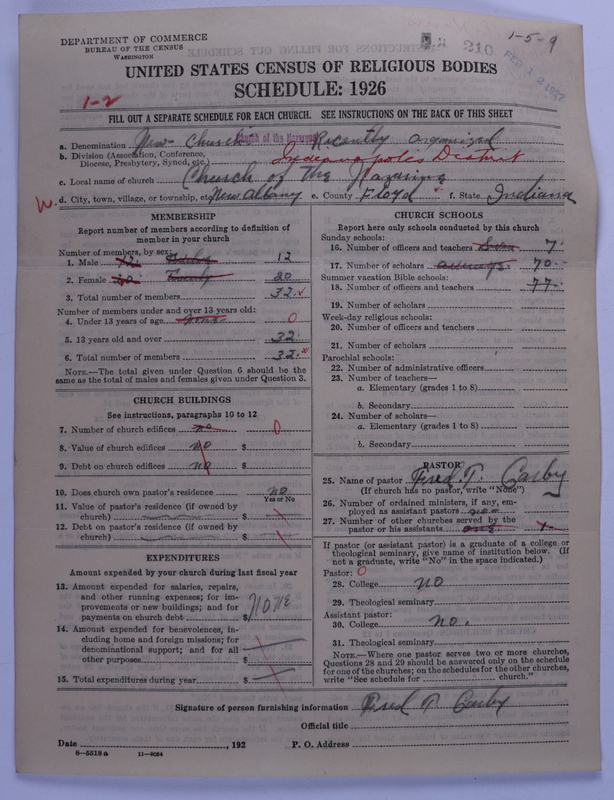 DEPARTMENT OF COMMERCE
BUREAU OF THE CENSUS
WASHINGTON
210
1-5-9
UNITED STATES CENSUS OF RELIGIOUS BODIES
SCHEDULE: 1926
1-2
FILL OUT A SEPARATE SCHEDULE FOR EACH CHURCH. SEE INSTRUCTIONS ON THE BACK OF THIS SHEET
a. Denomination New- Church Church of the Nazarene Recently organized
b. Division (Association, Conference, Diocese, Presbytery, Synod, etc.) Indianapolis District
c. Local name of church Church of the Nazarine
d. City, town, village, or township, etc. New Albany e. County Floyd f. State Indiana
MEMBERSHIP
Report number of members according to definition of member in your church
Number of members, by sex:
1. Male 12
2. Female 20
3. Total number of members 32
Number of members under and over 13 years old:
4. Under 13 years of age none 0
5. 13 years old and over 32
6. Total number of members 32
NOTE.—The total given under Question 6 should be the same as the total of males and females given under Question 3.
CHURCH BUILDINGS
See instructions, paragraphs 10 to 12
7. Number of church edifices no 0
8. Value of church edifices no $
9. Debt on church edifices no $
10. Does church own pastor's residence no
Yes or No
11. Value of pastor's residence (if owned by church) $
12. Debt on pastor's residence (if owned by church) $
EXPENDITURES
Amount expended by your church during last fiscal year
13. Amount expended for salaries, repairs, and other running expenses; for improvements or new buildings; and for payments on church debt $ None
14. Amount expended for benevolences, including home and foreign missions; for denominational support; and for all other purposes $
15. Total expenditures during year $
CHURCH SCHOOLS
Report here only schools conducted by this church
Sunday schools:
16. Number of officers and teachers 7
17. Number of scholars 70
Summer vacation Bible schools:
18. Number of officers and teachers 77
19. Number of scholars
Week-day religious schools:
20. Number of officers and teachers
21. Number of scholars
Parochial schools:
22. Number of administrative officers
23. Number of teachers—
a. Elementary (grades 1 to 8)
b. Secondary
24. Number of scholars—
a. Elementary (grades 1 to 8)
b. Secondary
PASTOR
25. Name of pastor Fred T.
(If church has no pastor, write "None")
26. Number of ordained ministers, if any, employed as assistant pastors
27. Number of other churches served by the pastor or his assistants
If pastor (or assistant pastor) is a graduate of a college or theological seminary, give name of institution below. (If not a graduate, write "No" in the space indicated.)
Pastor: 0
28. College no
29. Theological seminary
Assistant pastor:
30. College no.
31. Theological seminary
NOTE.—Where one pastor serves two or more churches, Questions 28 and 29 should be answered only on the schedule for one of the churches; on the schedules for the other churches, write "See schedule for church."
Signature of person furnishing information Fred T
Official title
Date , 192 P. O. Address
8—5518 a 11—9064